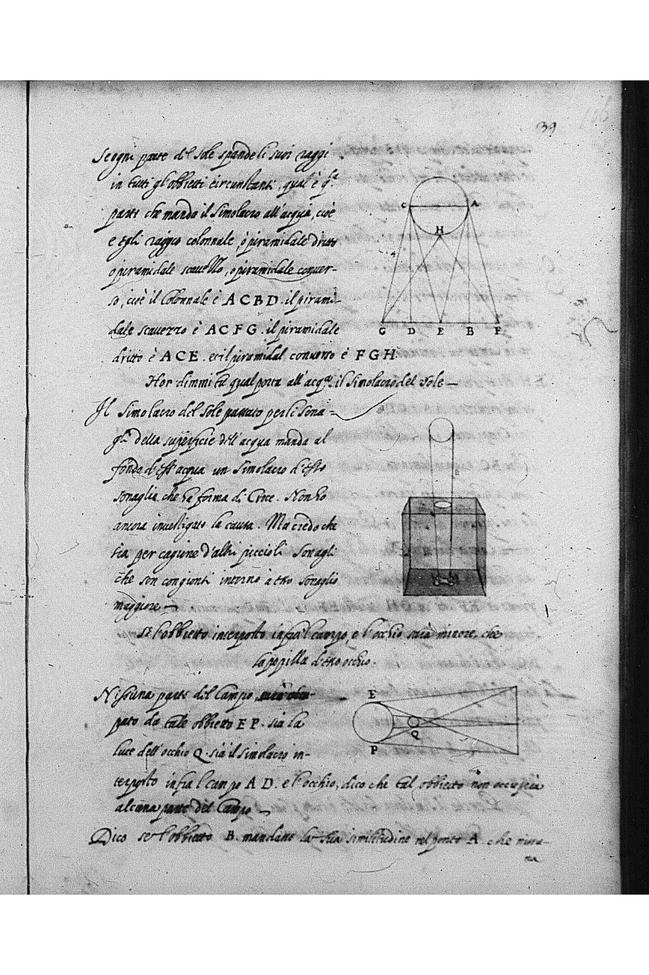 39
Se ogni parte del sole spande li suoi raggi
in tutti gl'obbietti circunstanti, qual è q.ª
parte che manda il simolacro all'acqua, cioè
e egli raggio colonnale, ò piramidale dritto
o piramidale scavezzo, o piramidale conver-
so, cioè il Colonnale è ACBD. il pirami-
dale scavezzo è ACFG. il piramidale
dritto è ACE. et il piramidal converso è FGH
Hor dimmi tu qual porta all'acq.ª il Simolacro del Sole
Il simolacro del sole passato per li sona-
gli della superficie dell'acqua manda al
fondo d'essa acqua un simolacro d'esso
sonaglio che ha forma di Croce. Non ho
ancora investigato la causa. Ma credo che
sia per cagione d'altri piccioli sonagli
che son congionti intorno a esso sonaglio
maggiore
Se l'obbietto interposto infra l campo, e l'occhio sarà minore, che
la popilla d'esso occhio.
Nissuna parte del Campo
pato da tale obbietto EP. sia la
luce dell'occhio Q. sia il simolacro in-
terposto infra l campo AD. e l'occhio, dico che tal obbietto non occuperà
alcuna parte del Campo
Dico se l'obbietto B. mandasse la sua similitudine nel ponto A. che nissu-
na
C A
H
G D E B F
E
Q
P